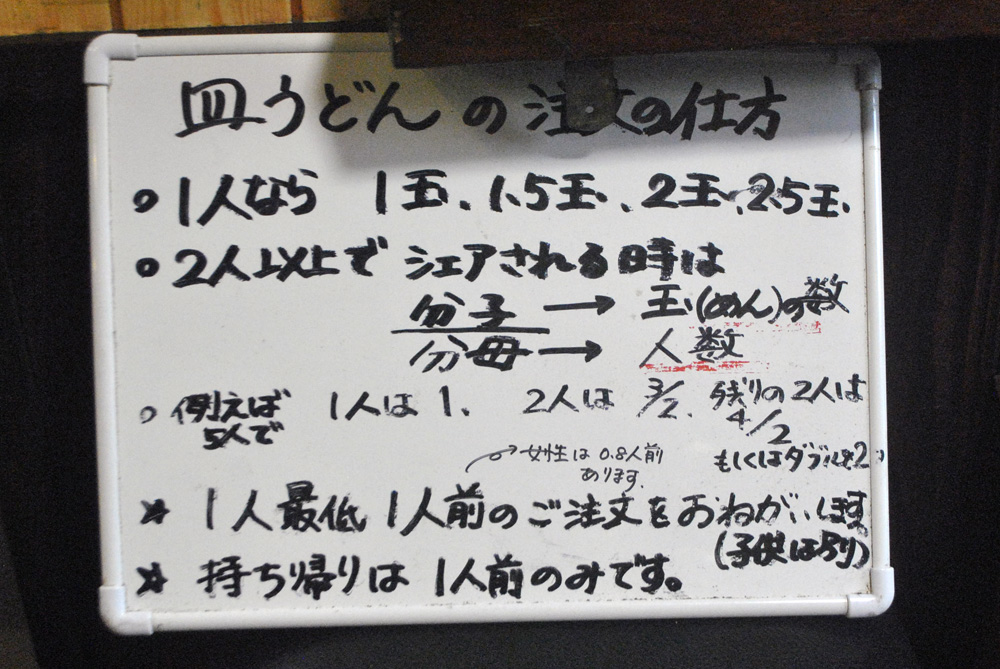 皿うどんの注文の仕方
○1人なら 1玉、1.5玉、2玉、2.5玉、
○2人以上で シェアされる時は
分子 → 玉(めん)の数
分母 → 人数
○例えば 5人で 1人は1、 2人は 3/2、 残りの2人は 4/2
もしくはダブルを2
女性は0.8人前
あります。
* 1人最低1人前のご注文をおねがいします
(子供は
* 持ち帰りは1人前のみです。